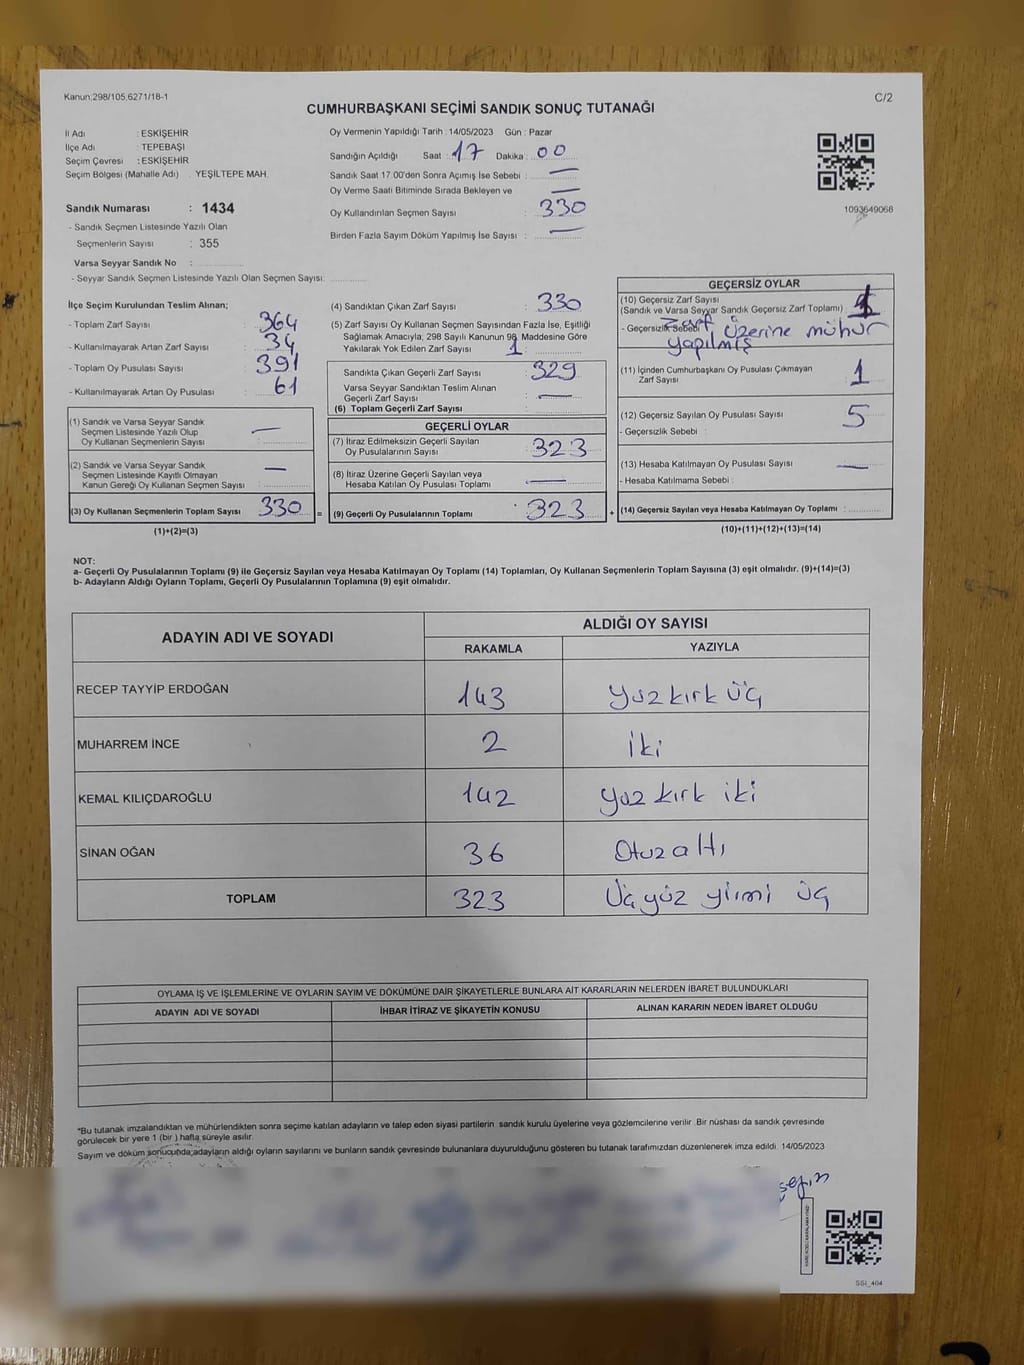 Kanun:298/105,6271/18-1
C/2
CUMHURBAŞKANI SEÇİMİ SANDIK SONUÇ TUTANAĞI
İl Adı : ESKİŞEHİR
İlçe Adı : TEPEBAŞI
Seçim Çevresi : ESKİŞEHİR
Seçim Bölgesi (Mahalle Adı) . YEŞİLTEPE MAH.
Sandık Numarası : 1434
- Sandık Seçmen Listesinde Yazılı Olan
Seçmenlerin Sayısı : 355
Varsa Seyyar Sandık No :
- Seyyar Sandık Seçmen Listesinde Yazılı Olan Seçmen Sayısı:
Oy Vermenin Yapıldığı Tarih : 14/05/2023 Gün : Pazar
Sandığın Açıldığı Saat : 17 Dakika : 00
Sandık Saat 17:00'den Sonra Açımış İse Sebebi : —
Oy Verme Saati Bitiminde Sırada Bekleyen ve —
Oy Kullandırılan Seçmen Sayısı : 330
Birden Fazla Sayım Döküm Yapılmış İse Sayısı : —
1093649068
İlçe Seçim Kurulundan Teslim Alınan;
- Toplam Zarf Sayısı : 364
- Kullanılmayarak Artan Zarf Sayısı : 34
- Toplam Oy Pusulası Sayısı : 391
- Kullanılmayarak Artan Oy Pusulası : 61
(1) Sandık ve Varsa Seyyar Sandık
Seçmen Listesinde Yazılı Olup
Oy Kullanan Seçmenlerin Sayısı : —
(2) Sandık ve Varsa Seyyar Sandık
Seçmen Listesinde Kayıtlı Olmayan
Kanun Gereği Oy Kullanan Seçmen Sayısı : —
(3) Oy Kullanan Seçmenlerin Toplam Sayısı : 330
(1)+(2)=(3)
=
(4) Sandıktan Çıkan Zarf Sayısı : 330
(5) Zarf Sayısı Oy Kullanan Seçmen Sayısından Fazla İse, Eşitliği
Sağlamak Amacıyla, 298 Sayılı Kanunun 98. Maddesine Göre
Yakılarak Yok Edilen Zarf Sayısı : 1
Sandıkta Çıkan Geçerli Zarf Sayısı : 329
Varsa Seyyar Sandıktan Teslim Alınan
Geçerli Zarf Sayısı : —
(6) Toplam Geçerli Zarf Sayısı :
GEÇERLİ OYLAR
(7) İtiraz Edilmeksizin Geçerli Sayılan
Oy Pusulalarının Sayısı : 323
(8) İtiraz Üzerine Geçerli Sayılan veya
Hesaba Katılan Oy Pusulası Toplamı : —
(9) Geçerli Oy Pusulalarının Toplamı : 323
+
GEÇERSİZ OYLAR
(10) Geçersiz Zarf Sayısı
(Sandık ve Varsa Seyyar Sandık Geçersiz Zarf Toplamı) : 1
- Geçersizlik Sebebi : zarf üzerine mühür
yapılmış
(11) İçinden Cumhurbaşkanı Oy Pusulası Çıkmayan
Zarf Sayısı 1
(12) Geçersiz Sayılan Oy Pusulası Sayısı : 5
- Geçersizlik Sebebi :
(13) Hesaba Katılmayan Oy Pusulası Sayısı : —
- Hesaba Katılmama Sebebi :
(14) Geçersiz Sayılan veya Hesaba Katılmayan Oy Toplamı :
(10)+(11)+(12)+(13)=(14)
NOT:
a- Geçerli Oy Pusulalarının Toplamı (9) ile Geçersiz Sayılan veya Hesaba Katılmayan Oy Toplamı (14) Toplamları, Oy Kullanan Seçmenlerin Toplam Sayısına (3) eşit olmalıdır. (9)+(14)=(3)
b- Adayların Aldığı Oyların Toplamı, Geçerli Oy Pusulalarının Toplamına (9) eşit olmalıdır.
ADAYIN ADI VE SOYADI ALDIĞI OY SAYISI
RAKAMLA YAZIYLA
RECEP TAYYİP ERDOĞAN 143 yüz kırk üç
MUHARREM İNCE 2 iki
KEMAL KILIÇDAROĞLU 142 yüz kırk iki
SİNAN OĞAN 36 Otuz altı
TOPLAM 323 Üçyüz yirmi üç
OYLAMA İŞ VE İŞLEMLERİNE VE OYLARIN SAYIM VE DÖKÜMÜNE DAİR ŞİKAYETLERLE BUNLARA AİT KARARLARIN NELERDEN İBARET BULUNDUKLARI
ADAYIN ADI VE SOYADI İHBAR İTİRAZ VE ŞİKAYETİN KONUSU ALINAN KARARIN NEDEN İBARET OLDUĞU
*Bu tutanak imzalandıktan ve mühürlendikten sonra seçime katılan adayların ve talep eden siyasi partilerin sandık kurulu üyelerine veya gözlemcilerine verilir. Bir nüshası da sandık çevresinde
görülecek bir yere 1 (bir ) hafta süreyle asılır.
Sayım ve döküm sonucunda adayların aldığı oyların sayılarını ve bunların sandık çevresinde bulunanlara duyurulduğunu gösteren bu tutanak tarafımızdan düzenlenerek imza edildi. 14/05/2023
SSI_404